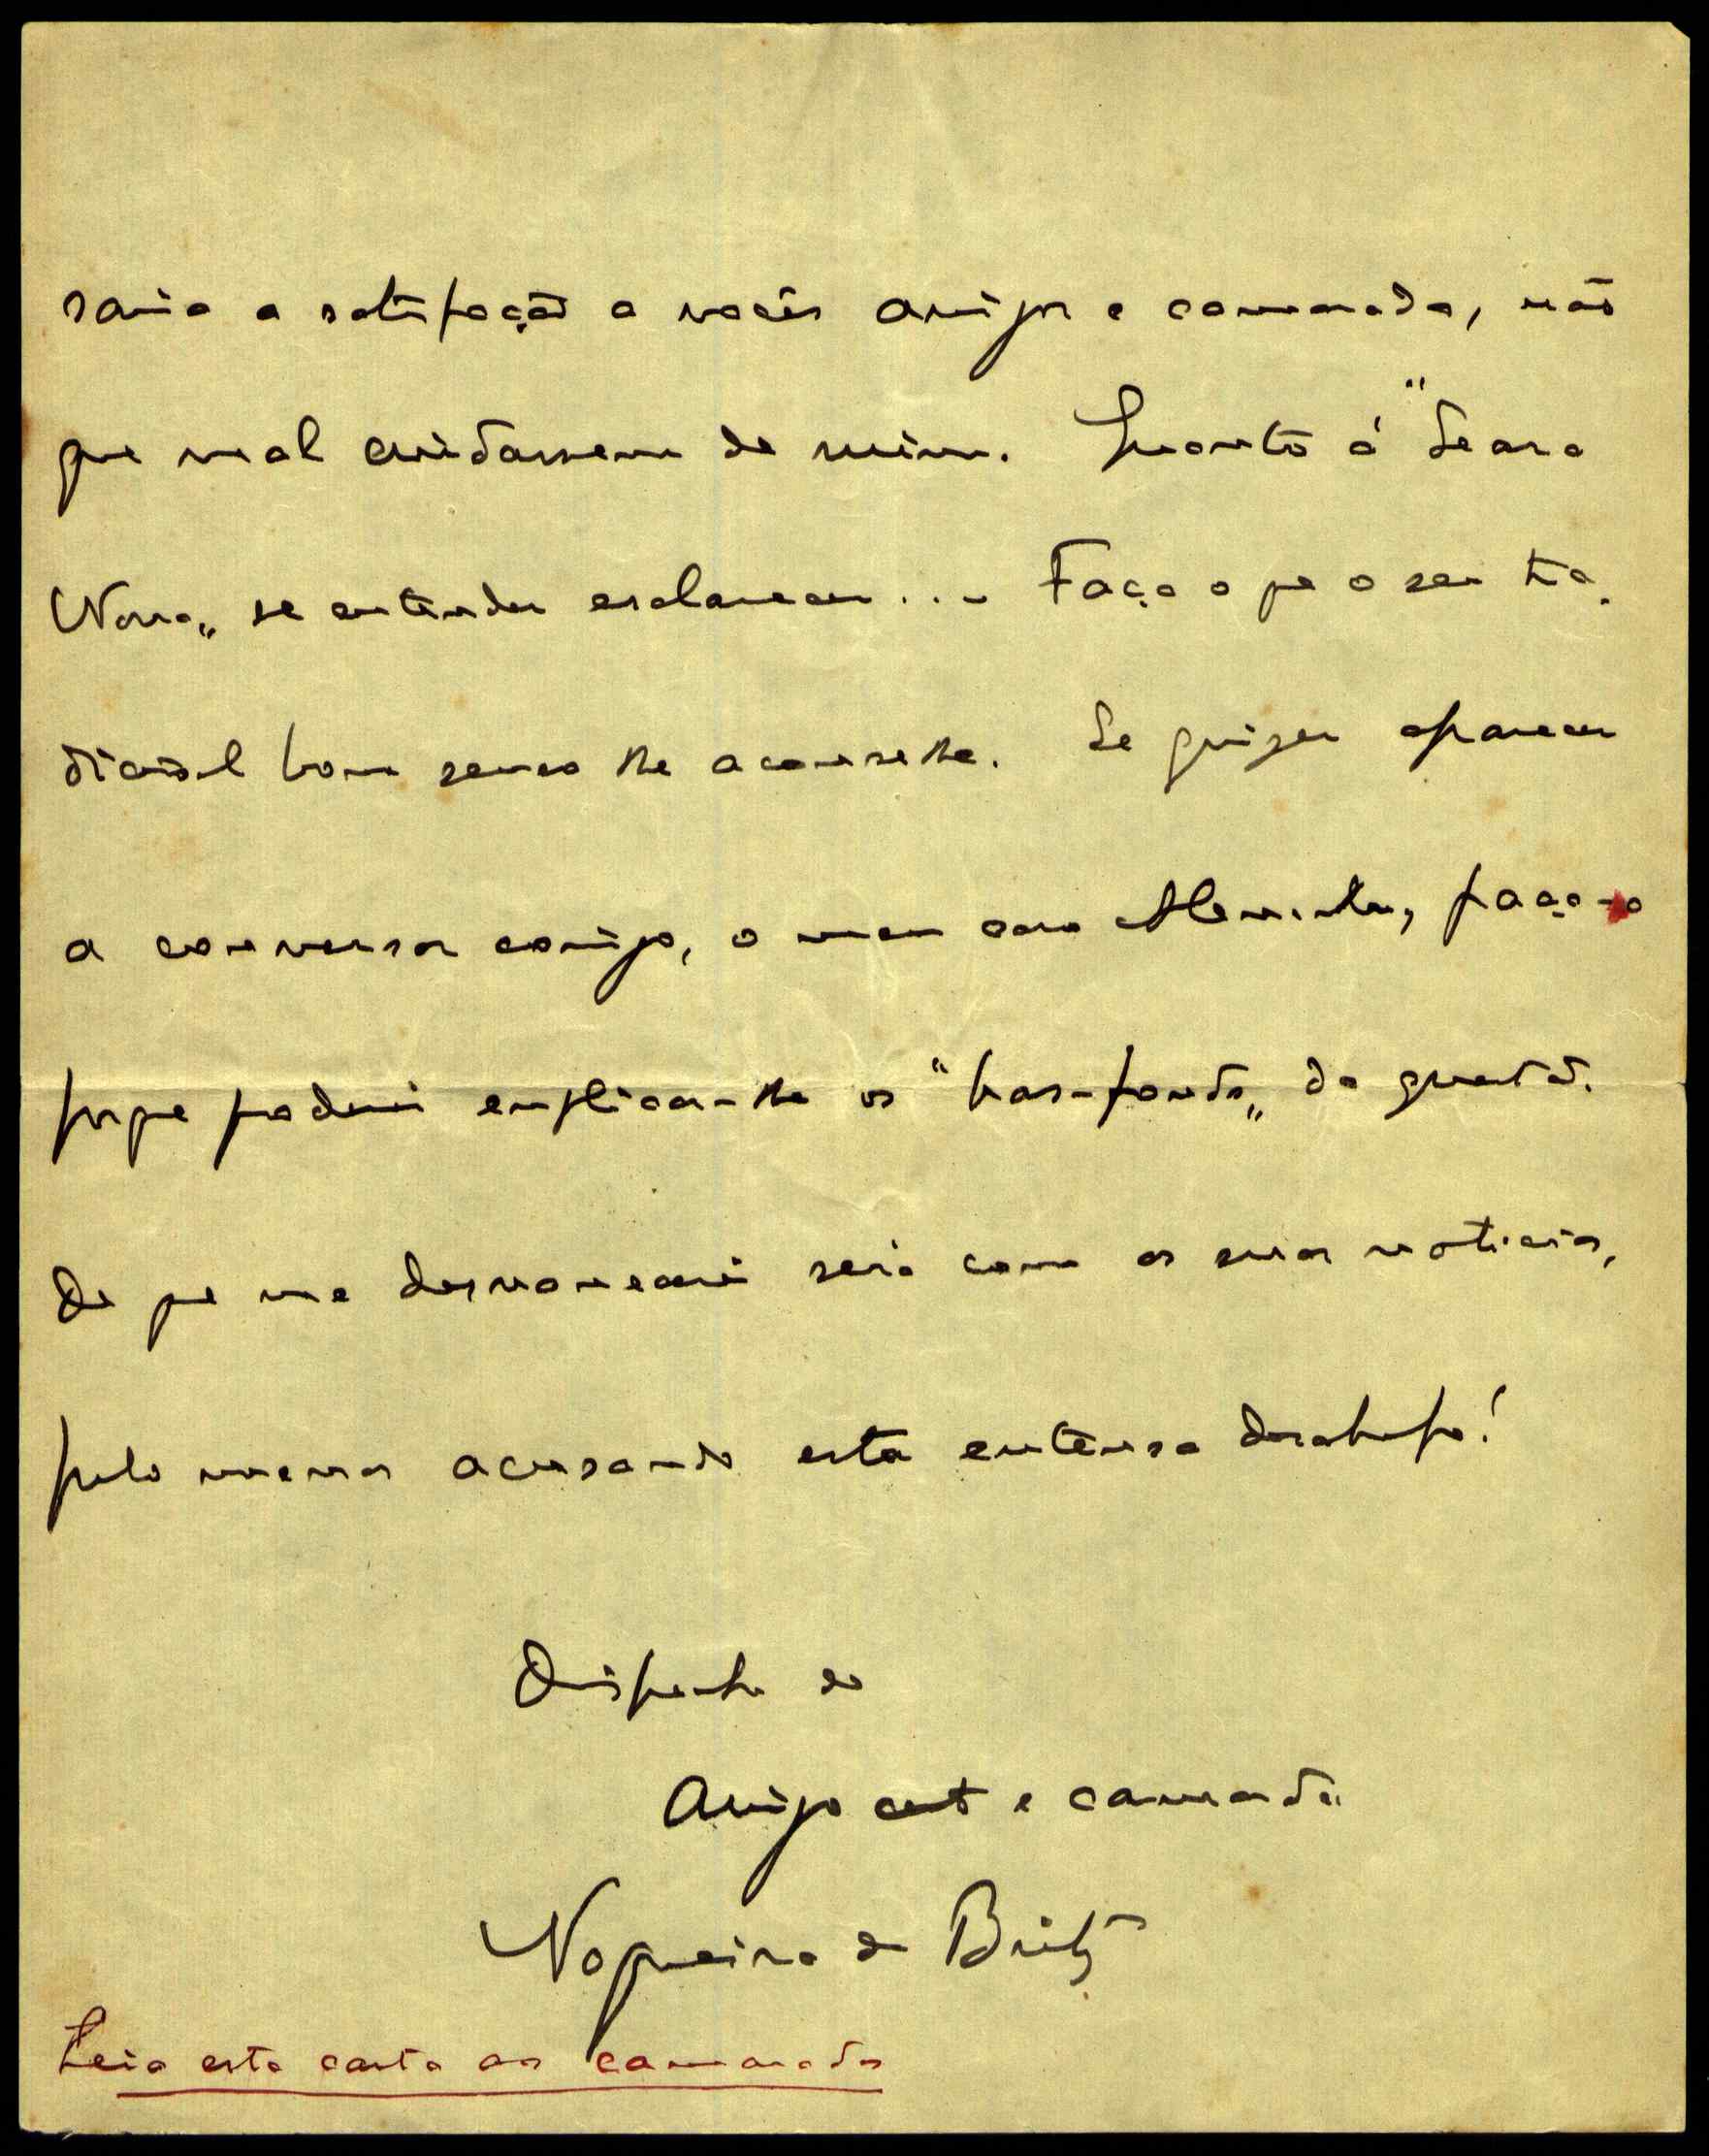 saria a satisfação a vocês amigos e camaradas, não
que mal cuidassem de mim. Quanto á "Seara
Nova„ se entender esclarecer... Faça o que o seu tra-
dicional bom senso lhe aconselhe. Se quizer aparecer
a conversar comigo, o meu caro Alexandre, faça-o
porque poderei explicar-lhe os "bas-fonds„ da questão.
Do que me desvanecerei será com as suas noticias,
pelo menos acusando esta extensa desabafo!
Disponha do
Amigo certo e camarada
Nogueira de Brito
Leia esta carta aos camaradas